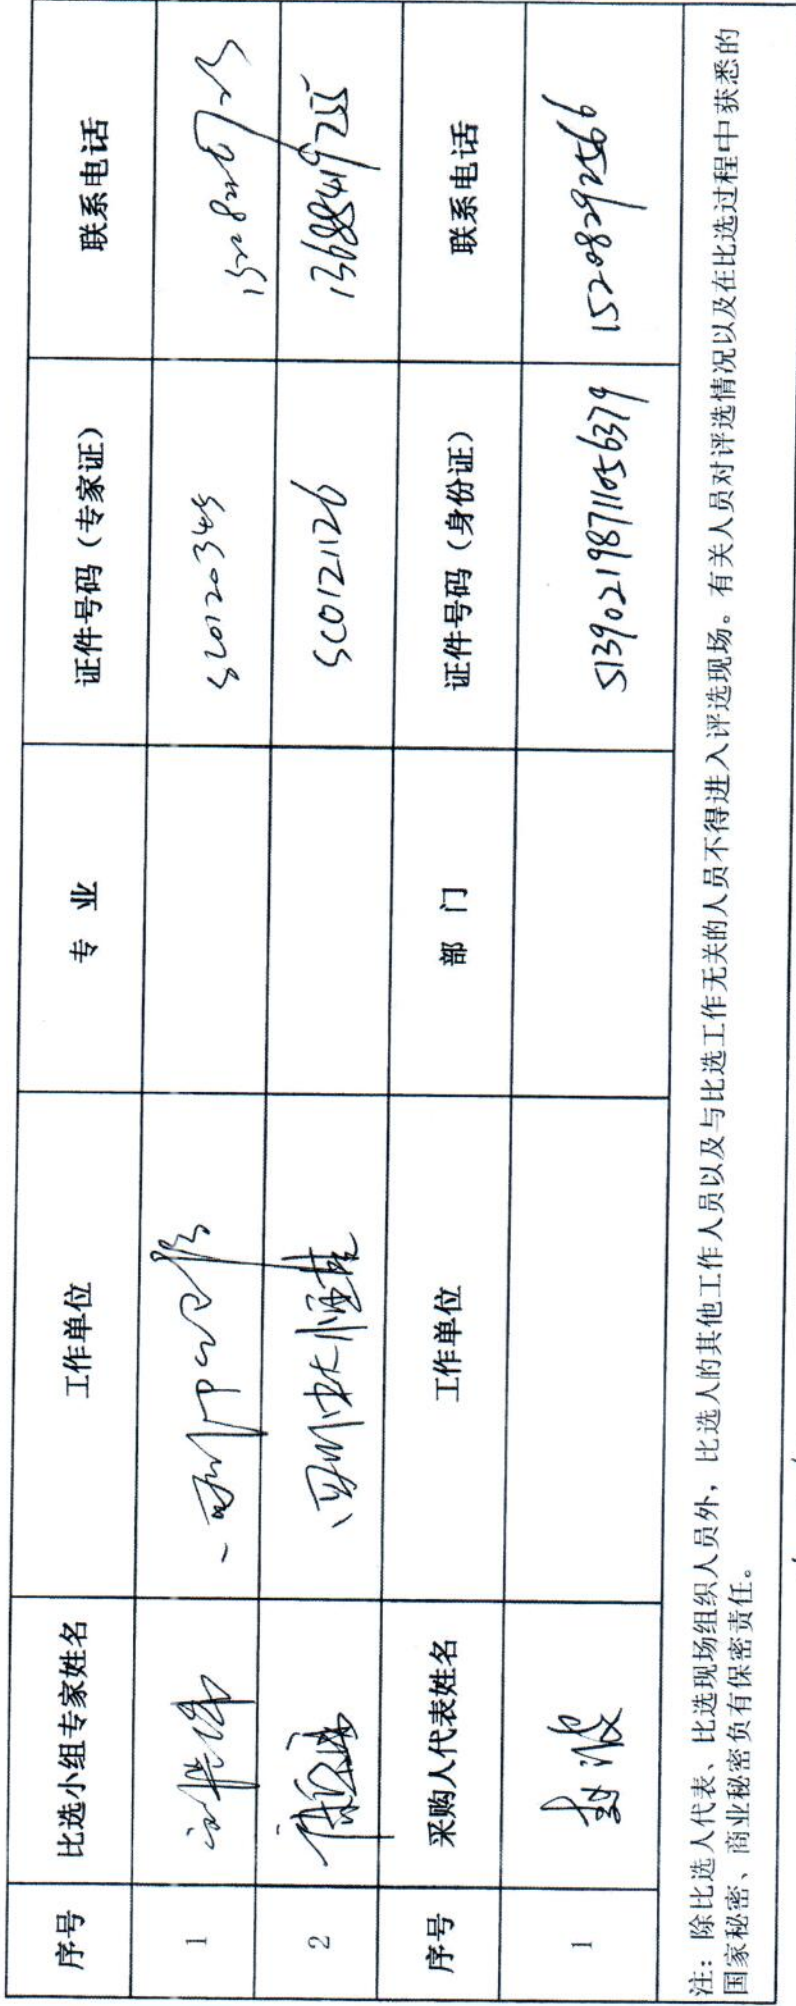 序号 比选小组专家姓名 工作单位 专 业 证件号码（专家证） 联系电话
1
2 SC012126 13688419255
序号 采购人代表姓名 工作单位 部 门 证件号码（身份证） 联系电话
1 赵波 513902198711056379 15208292566
注：除比选人代表、比选现场组织人员外，比选人的其他工作人员以及与比选工作无关的人员不得进入评选现场。有关人员对评选情况以及在比选过程中获悉的
国家秘密、商业秘密负有保密责任。